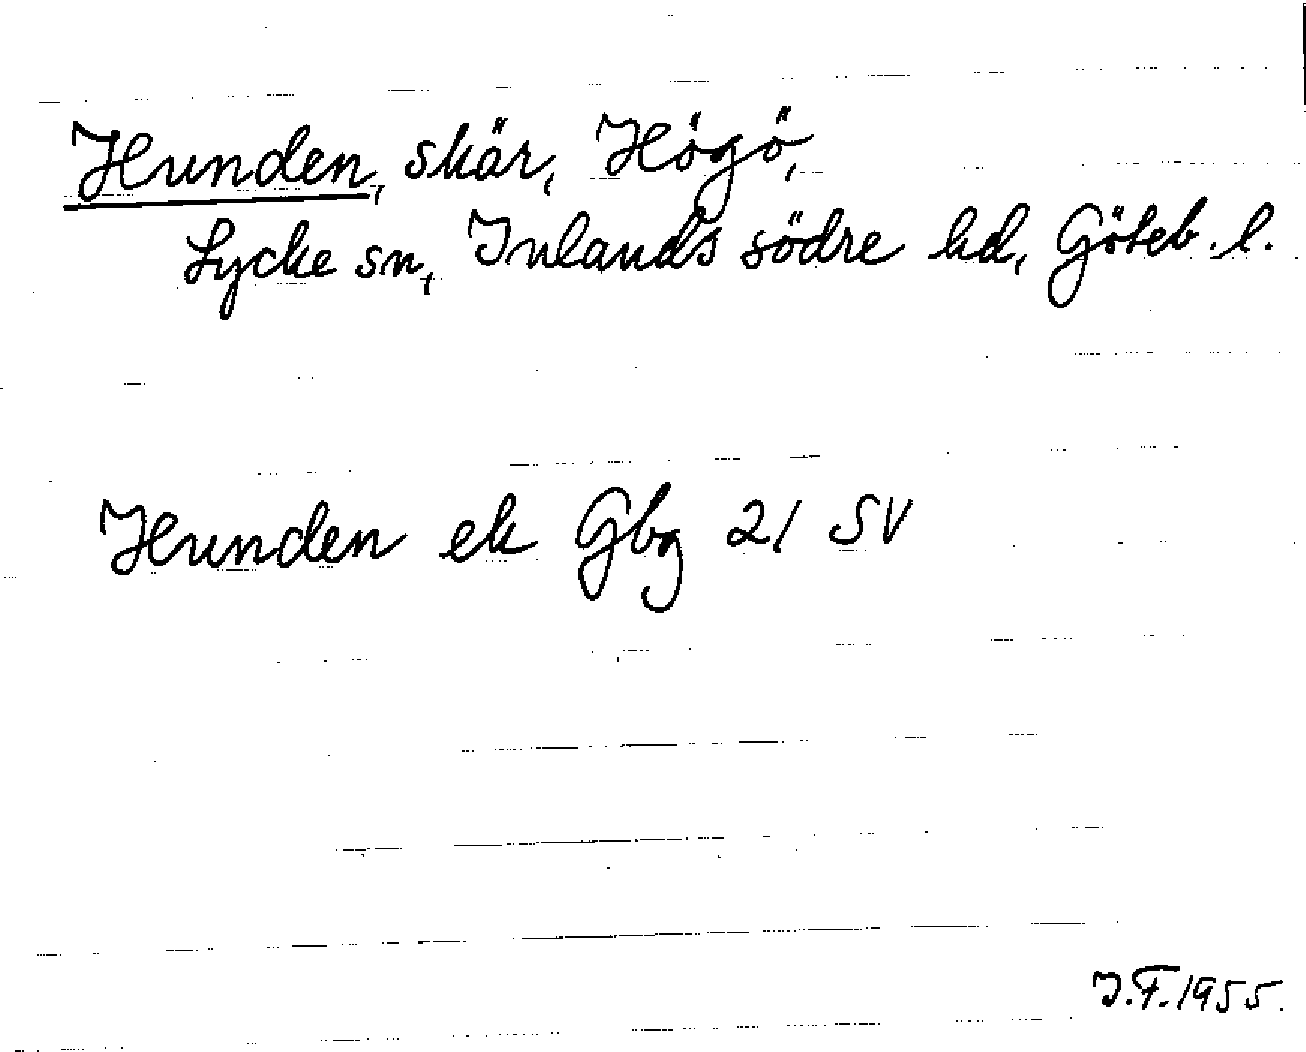 Hunden, skär, Högö,
Lycke sn, Inlands södre hd, Göteb. l.
Hunden ek Gbg 21 SV
I.F. 1955.